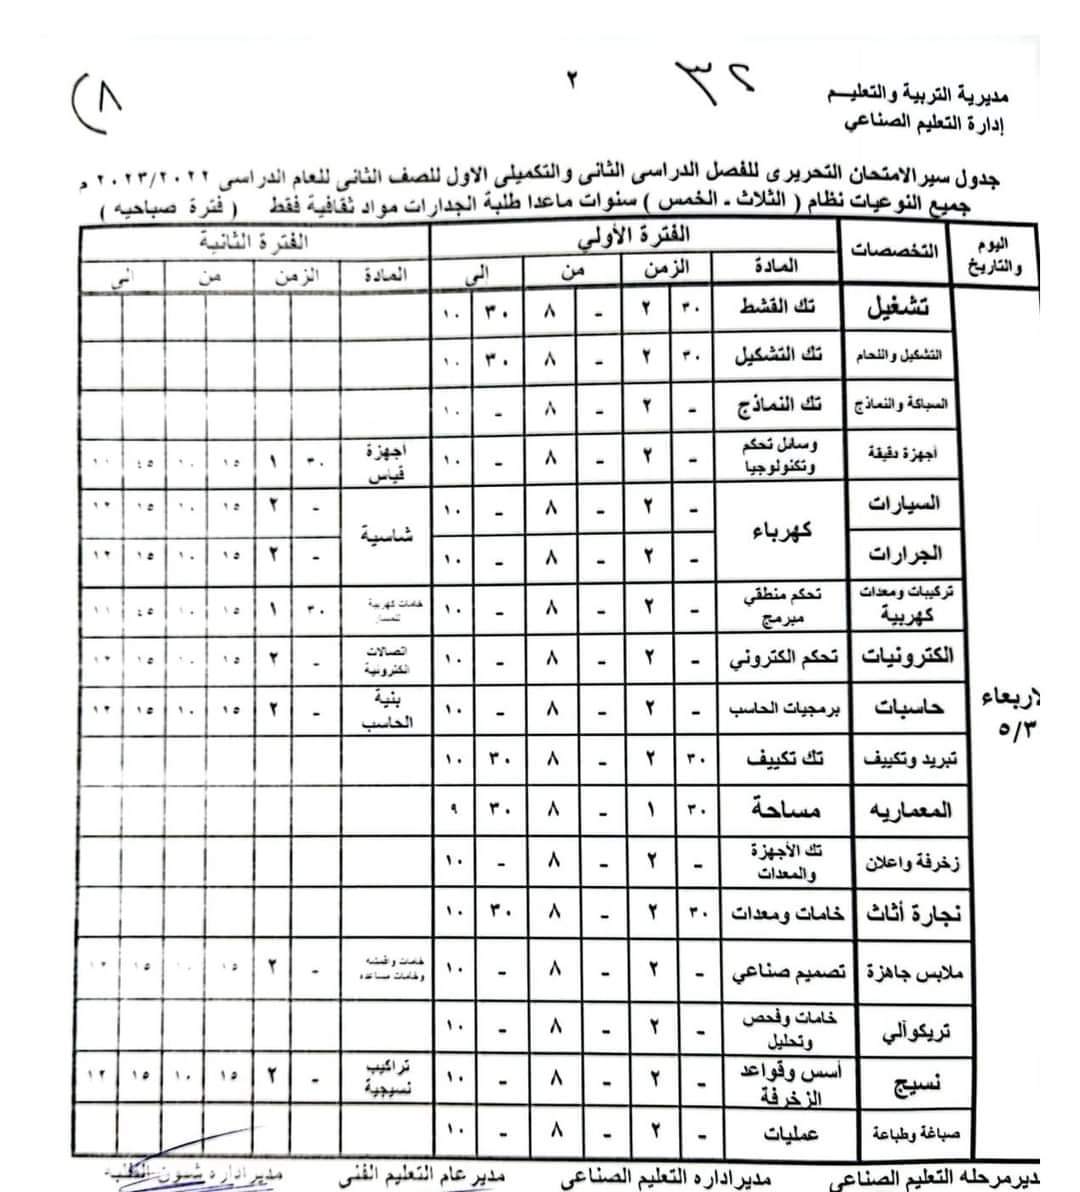 ٨)
٢
٣٢
مديرية التربية والتعليـــم
إدارة التعليم الصناعي
جدول سير الامتحان التحريرى للفصل الدراسى الثانى والتكميلى الاول للصف الثانى للعام الدراسى ٢٠٢٣/٢٠٢٢ م
جميع النوعيات نظام ( الثلاث - الخمس ) سنوات ماعدا طلبة الجدارات مواد ثقافية فقط ( فترة صباحيه )
اليوم والتاريخ التخصصات الفترة الأولي الفترة الثانية
المادة الزمن من إلي المادة الزمن من إلي
تشغيل تك القشط ٣٠ ٢ - ٨ ٣٠ ١٠
التشكيل واللحام تك التشكيل ٣٠ ٢ - ٨ ٣٠ ١٠
السباكة والنماذج تك النماذج - ٢ - ٨ - ١٠
أجهزة دقيقة وسائل تحكم وتكنولوجيا - ٢ - ٨ - ١٠ اجهزة قياس ٣٠ ١ ١٥ ١٠ ٤٥ ١١
السيارات كهرباء - ٢ - ٨ - ١٠ شاسية - ٢ ١٥ ١٠ ١٥ ١٢
الجرارات - ٢ - ٨ - ١٠ - ٢ ١٥ ١٠ ١٥ ١٢
تركيبات ومعدات كهربية تحكم منطقي مبرمج - ٢ - ٨ - ١٠ خامات كهربية ٣٠ ١ ١٥ ١٠ ٤٥ ١١
الكترونيات تحكم الكتروني - ٢ - ٨ - ١٠ اتصالات الكترونية - ٢ ١٥ ١٠ ١٥ ١٢
حاسبات برمجيات الحاسب - ٢ - ٨ - ١٠ بنية الحاسب - ٢ ١٥ ١٠ ١٥ ١٢
لاربعاء
٥/٣
تبريد وتكييف تك تكييف ٣٠ ٢ - ٨ ٣٠ ١٠
المعماريه مساحة ٣٠ ١ - ٨ ٣٠ ٩
زخرفة واعلان تك الأجهزة والمعدات - ٢ - ٨ - ١٠
نجارة أثاث خامات ومعدات ٣٠ ٢ - ٨ ٣٠ ١٠
ملابس جاهزة تصميم صناعي - ٢ - ٨ - ١٠ خامات واقمشه وخامات مساعده - ٢ ١٥ ١٠ ١٥ ١٢
تريكوآلي خامات وفحص وتحليل - ٢ - ٨ - ١٠
نسيج أسس وقواعد الزخرفة - ٢ - ٨ - ١٠ تراكيب نسيجية - ٢ ١٥ ١٠ ١٥ ١٢
صباغة وطباعة عمليات - ٢ - ٨ - ١٠
ديرمرحله التعليم الصناعي مديراداره التعليم الصناعى مدير عام التعليم الفنى مديراداره شئون الطلبه